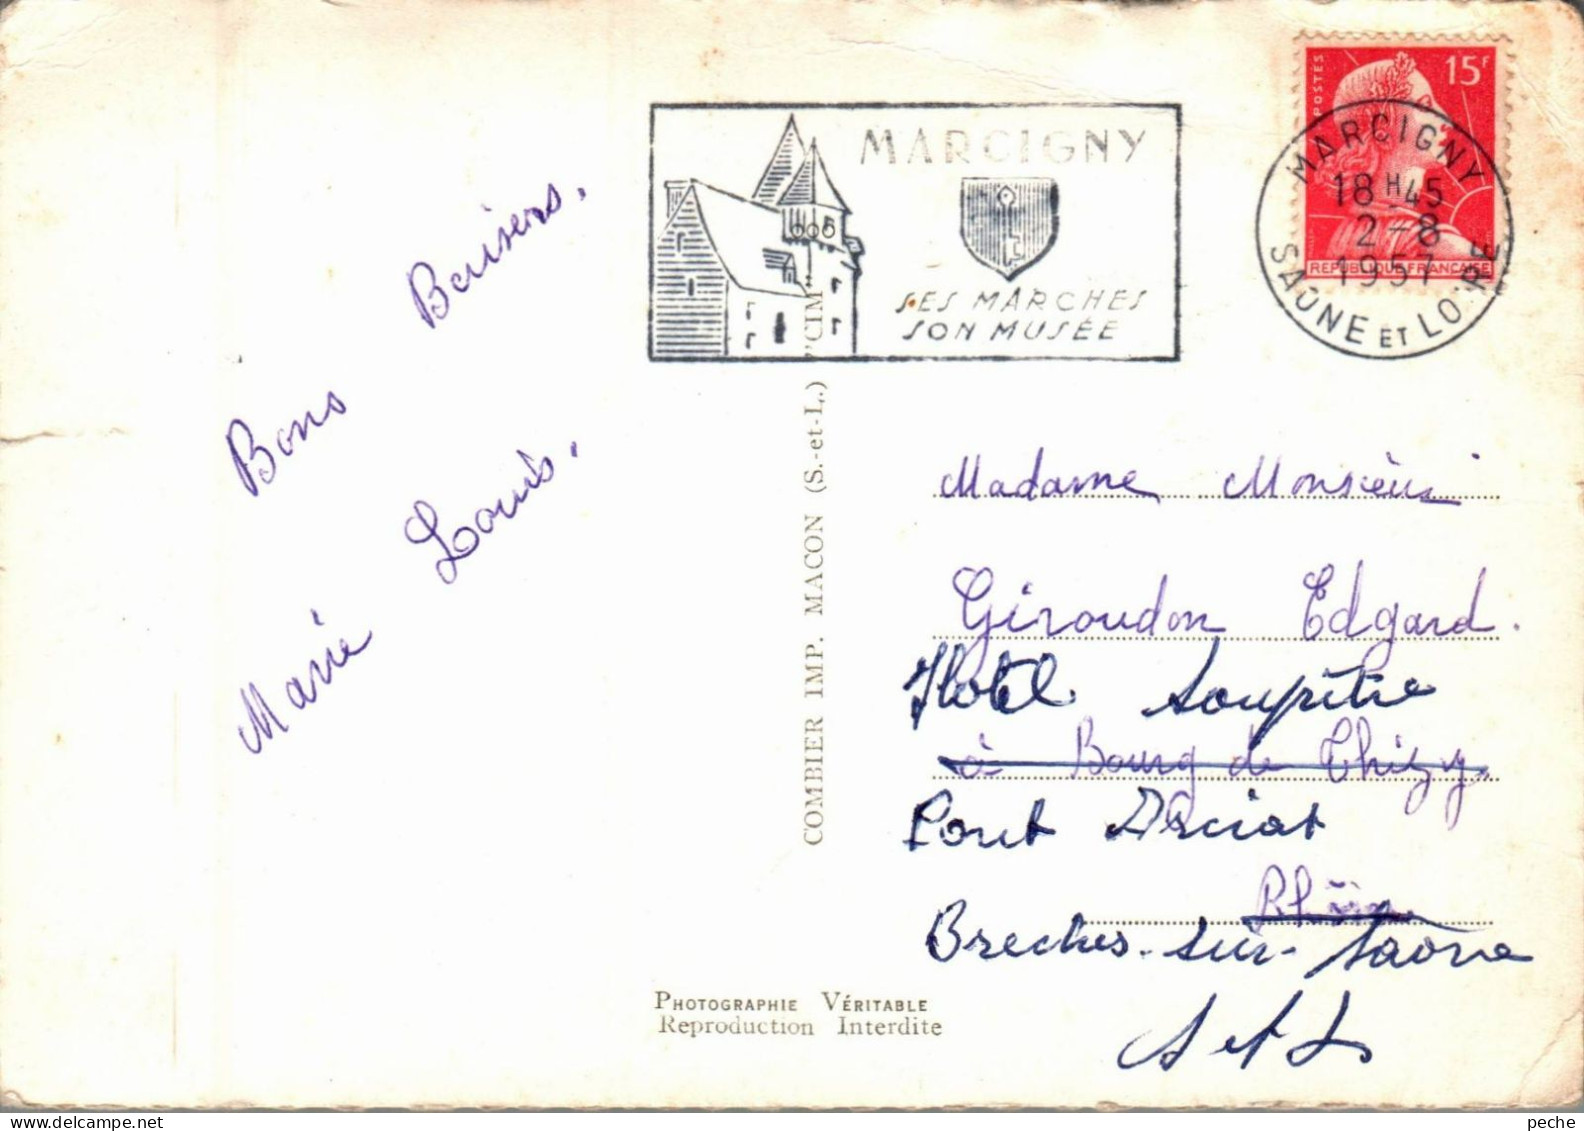 Bons Baisers.
Marie Louis.
MARCIGNY
SES MARCHES
SON MUSÉE
POSTES
15F
REPUBLIQUE FRANÇAISE
MARCIGNY
18 H 45
2-8
1957
SAÔNE ET LOIRE
COMBIER IMP. MACON (S.-et-L.) "CIM"
Madame Monsieur
Giroudon Edgard.
Hotel Soupitie
à Bourg de Thizy
Pont Arciat
Rhône
Creches-sur-Saone
S et L
PHOTOGRAPHIE VÉRITABLE
Reproduction Interdite
peche